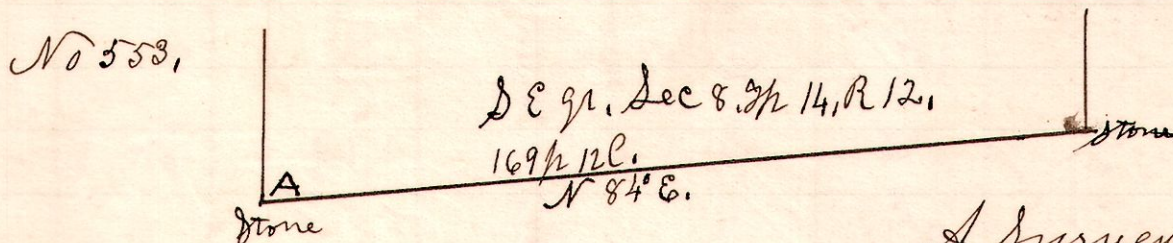 No 553,
S E qr, Sec 8, Tp 14, R 12,
Stone
169p 12l.
N 84° E.
A
Stone
A Survey